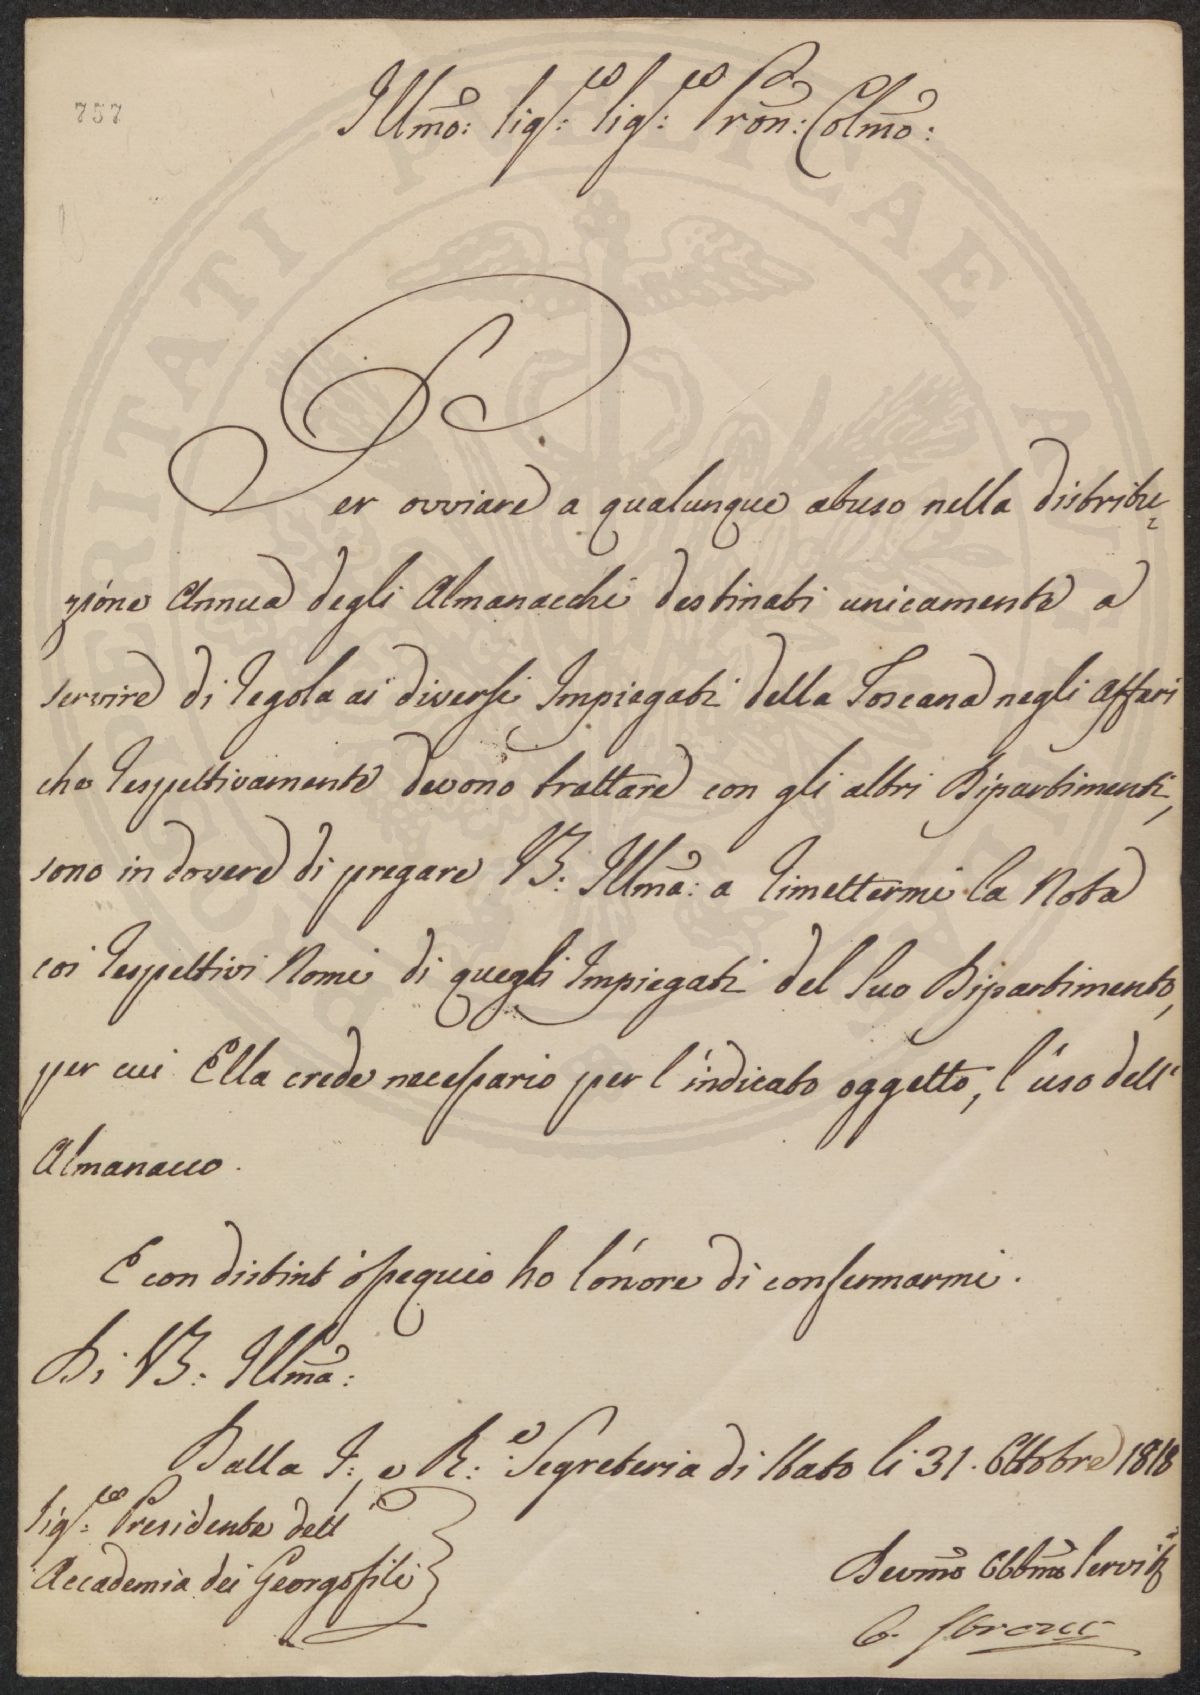 757
Illmo: Sig.re Sig.re Pron: Colmo:
Per ovviare a qualunque abuso nella distribu=
zione Annua degli Almanacchi destinati unicamente a
servire di regola ai diversi Impiegati della Toscana negli affari
che respettivamente devono trattare con gli altri Dipartimenti,
sono in dovere di pregare VS: Illma: a rimettermi la Nota
coi respettivi Nomi di quegli Impiegati del suo Dipartimento,
per cui Ella crede necessario per l'indicato oggetto, l'uso dell'
Almanacco.
E con distint'ossequio ho l'onore di confermarmi.
Di VS: Illma:
Dalla I: e R:e Segreteria di Stato li 31. Ottobre 1818
Sig:re Presidente dell'
Accademia dei Georgofili
Devmo Obbmo Servit.
PROSPERITATI PUBLICAE AUGENDAE